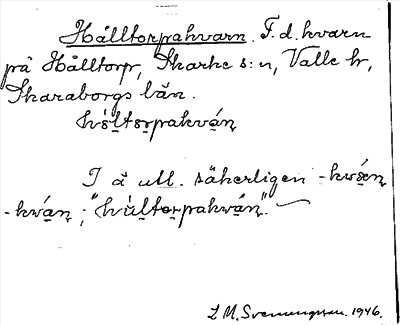 Hålltorpakvarn. F. d. kvarn
på Hålltorp, Skarke s:n, Valle hd,
Skaraborgs län.
hỏltorpakván
I ä utt. säkerligen -kwén
-kwán; "hùltorpakwán".
L. M. Svenungsson. 1946.